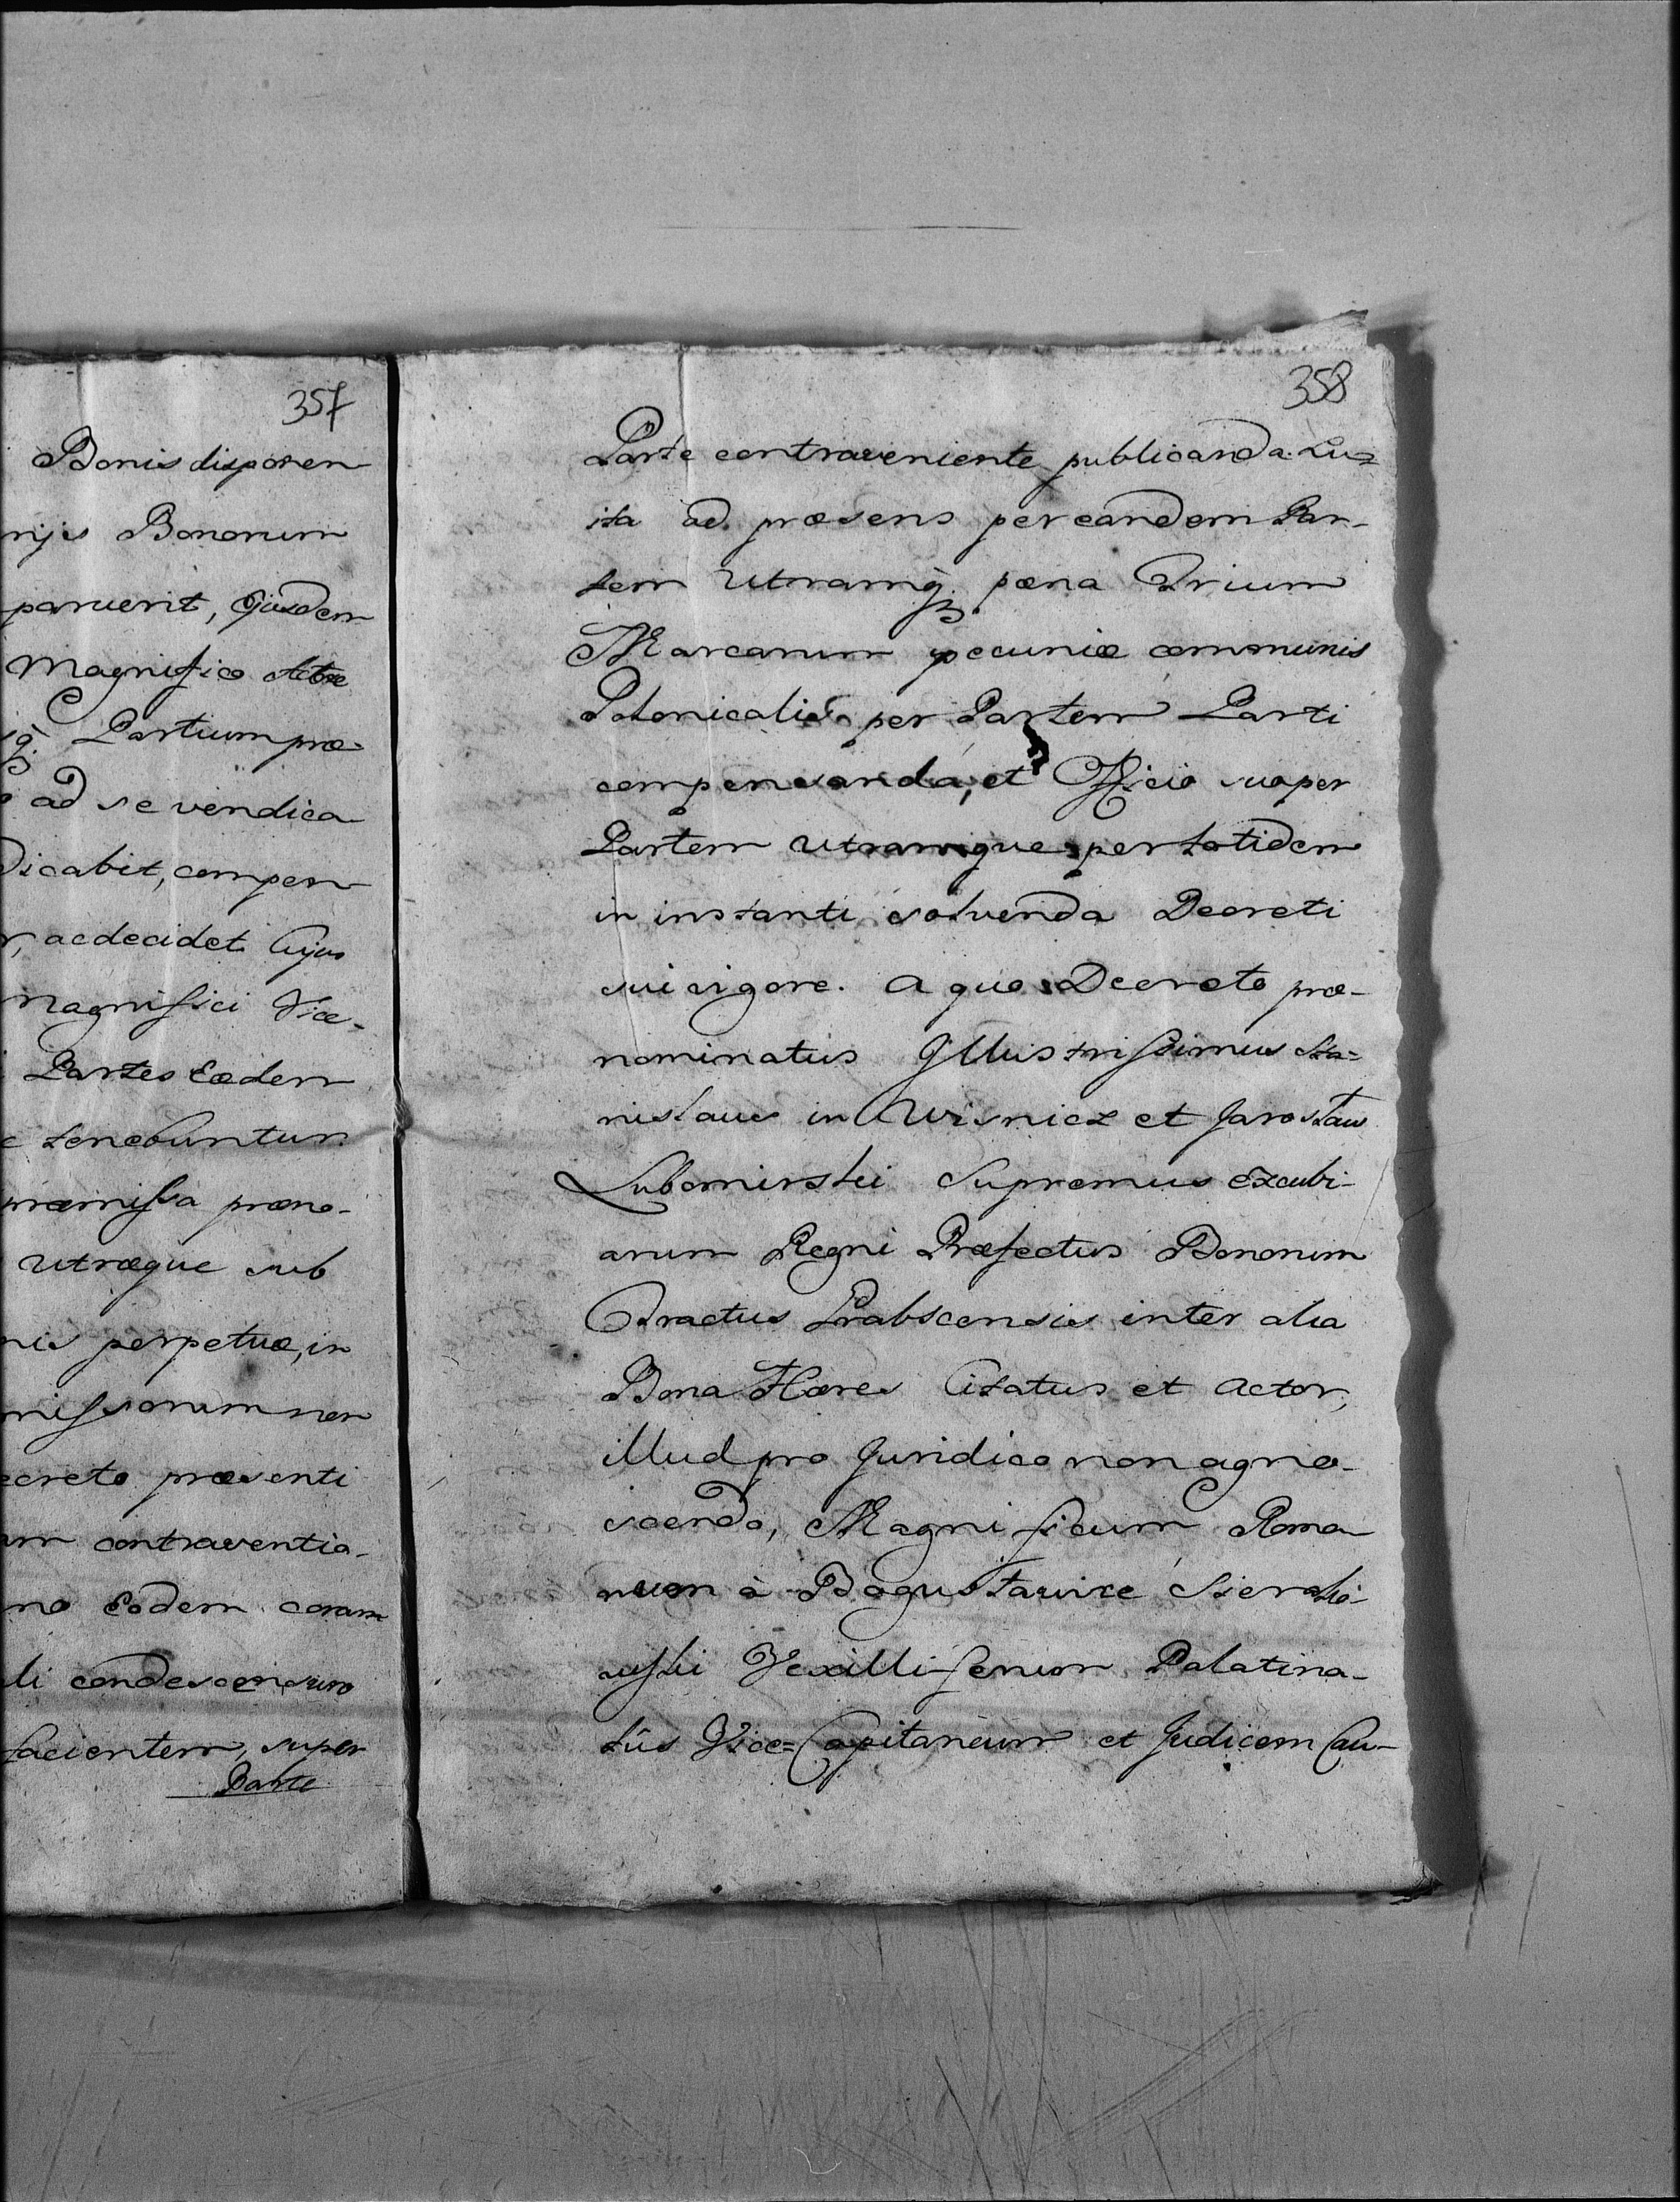 357
Bonis disponen
nijs Bonorum
paruerit, Ejusdem
Magnifico
q̃ Partium præ-
ad se vendica
dicabit, compen
r, ac decidet Cujus
Magnifici Vice-
Partes Eædem
e tenebuntur
præmissa præno-
Utræque sub
nis perpetuæ, in
missorum non
ecreto præsenti
am contraventio-
no Eodem coram
li condescensuro
facientem, super
Parte
358
Parte contraveniente publicanda. Lu=
ita ad præsens per eandem Par-
tem Utramq̃ pæna Trium
Marcarum pecuniæ communis
Polonicalis per Partem Parti
compensanda, et Officio suo per
Partem Utramque per totidem
in instanti solvenda Decreti
sui vigore. A quo Decreto præ-
nominatus Illustrissimus Sta=
nislaus in Wisnicz et Jarosław
Lubomirski Supremus Excubi-
arum Regni Præfectus Bonorum
Tractus Drabscensis inter alia
Bona Hæres Citatus et Actor,
illud pro Juridico non agno-
scendo, Magnificum Roma
num à Bogusławice Siera-
Vexilliferum Palatina-
tûs Vice=Capitaneum et Judicem Cau-